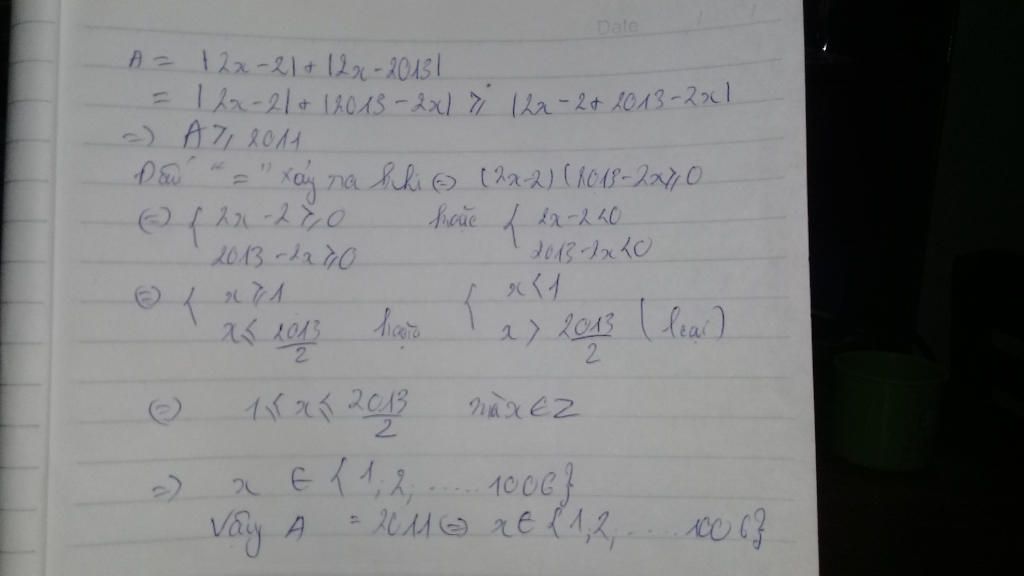 Date
A = |2x-2| + |2x-2013|
= |2x-2| + |2013-2x| ≥ |2x-2+2013-2x|
=> A ≥ 2011
Dấu "=" xảy ra khi <=> (2x-2)(2013-2x≥0
<=> { 2x-2≥0 hoặc { 2x-2<0
2013-2x≥0 2013-2x<0
<=> { x≥1 { x<1
x≤ 2013/2 hoặc x> 2013/2 (loại)
<=> 1≤x≤ 2013/2 mà x∈Z
=> x ∈ {1,2,.....1006}
Vậy A = 2011 <=> x∈{1,2,.....1006}